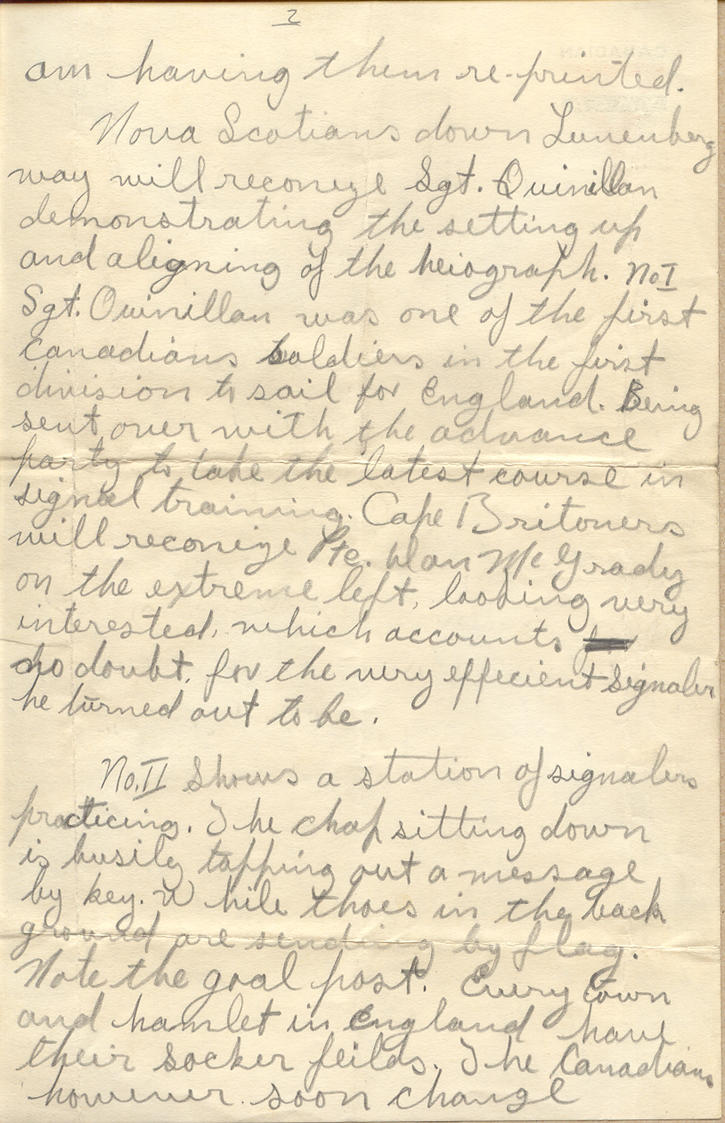 2
am having them re-printed.
Nova Scotians down Lunenberg
way will reconize Sgt. Quinillan
demonstrating the setting up
and aligning of the heiograph. No I
Sgt. Quinillan was one of the first
Canadians soldiers in the first
division to sail for England. Being
sent over with the advance
party to take the latest course in
signal training. Cape Britoners
will reconize Pte. Dan McGrady
on the extreme left, looking very
interested, which accounts
no doubt, for the very effecient signaler
he turned out to be.
No. II Shows a station of signalers
practicing. The chap sitting down
is busily tapping out a message
by key. While thoes in the back
ground are sending by flag.
Note the goal post. Every town
and hamlet in England have
their socker feilds. The Canadians
however soon change